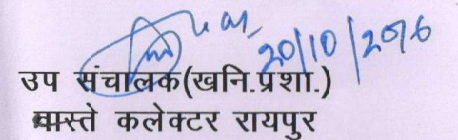 20/10/2016
उप संचालक(खनि.प्रशा.)
वास्ते कलेक्टर रायपुर